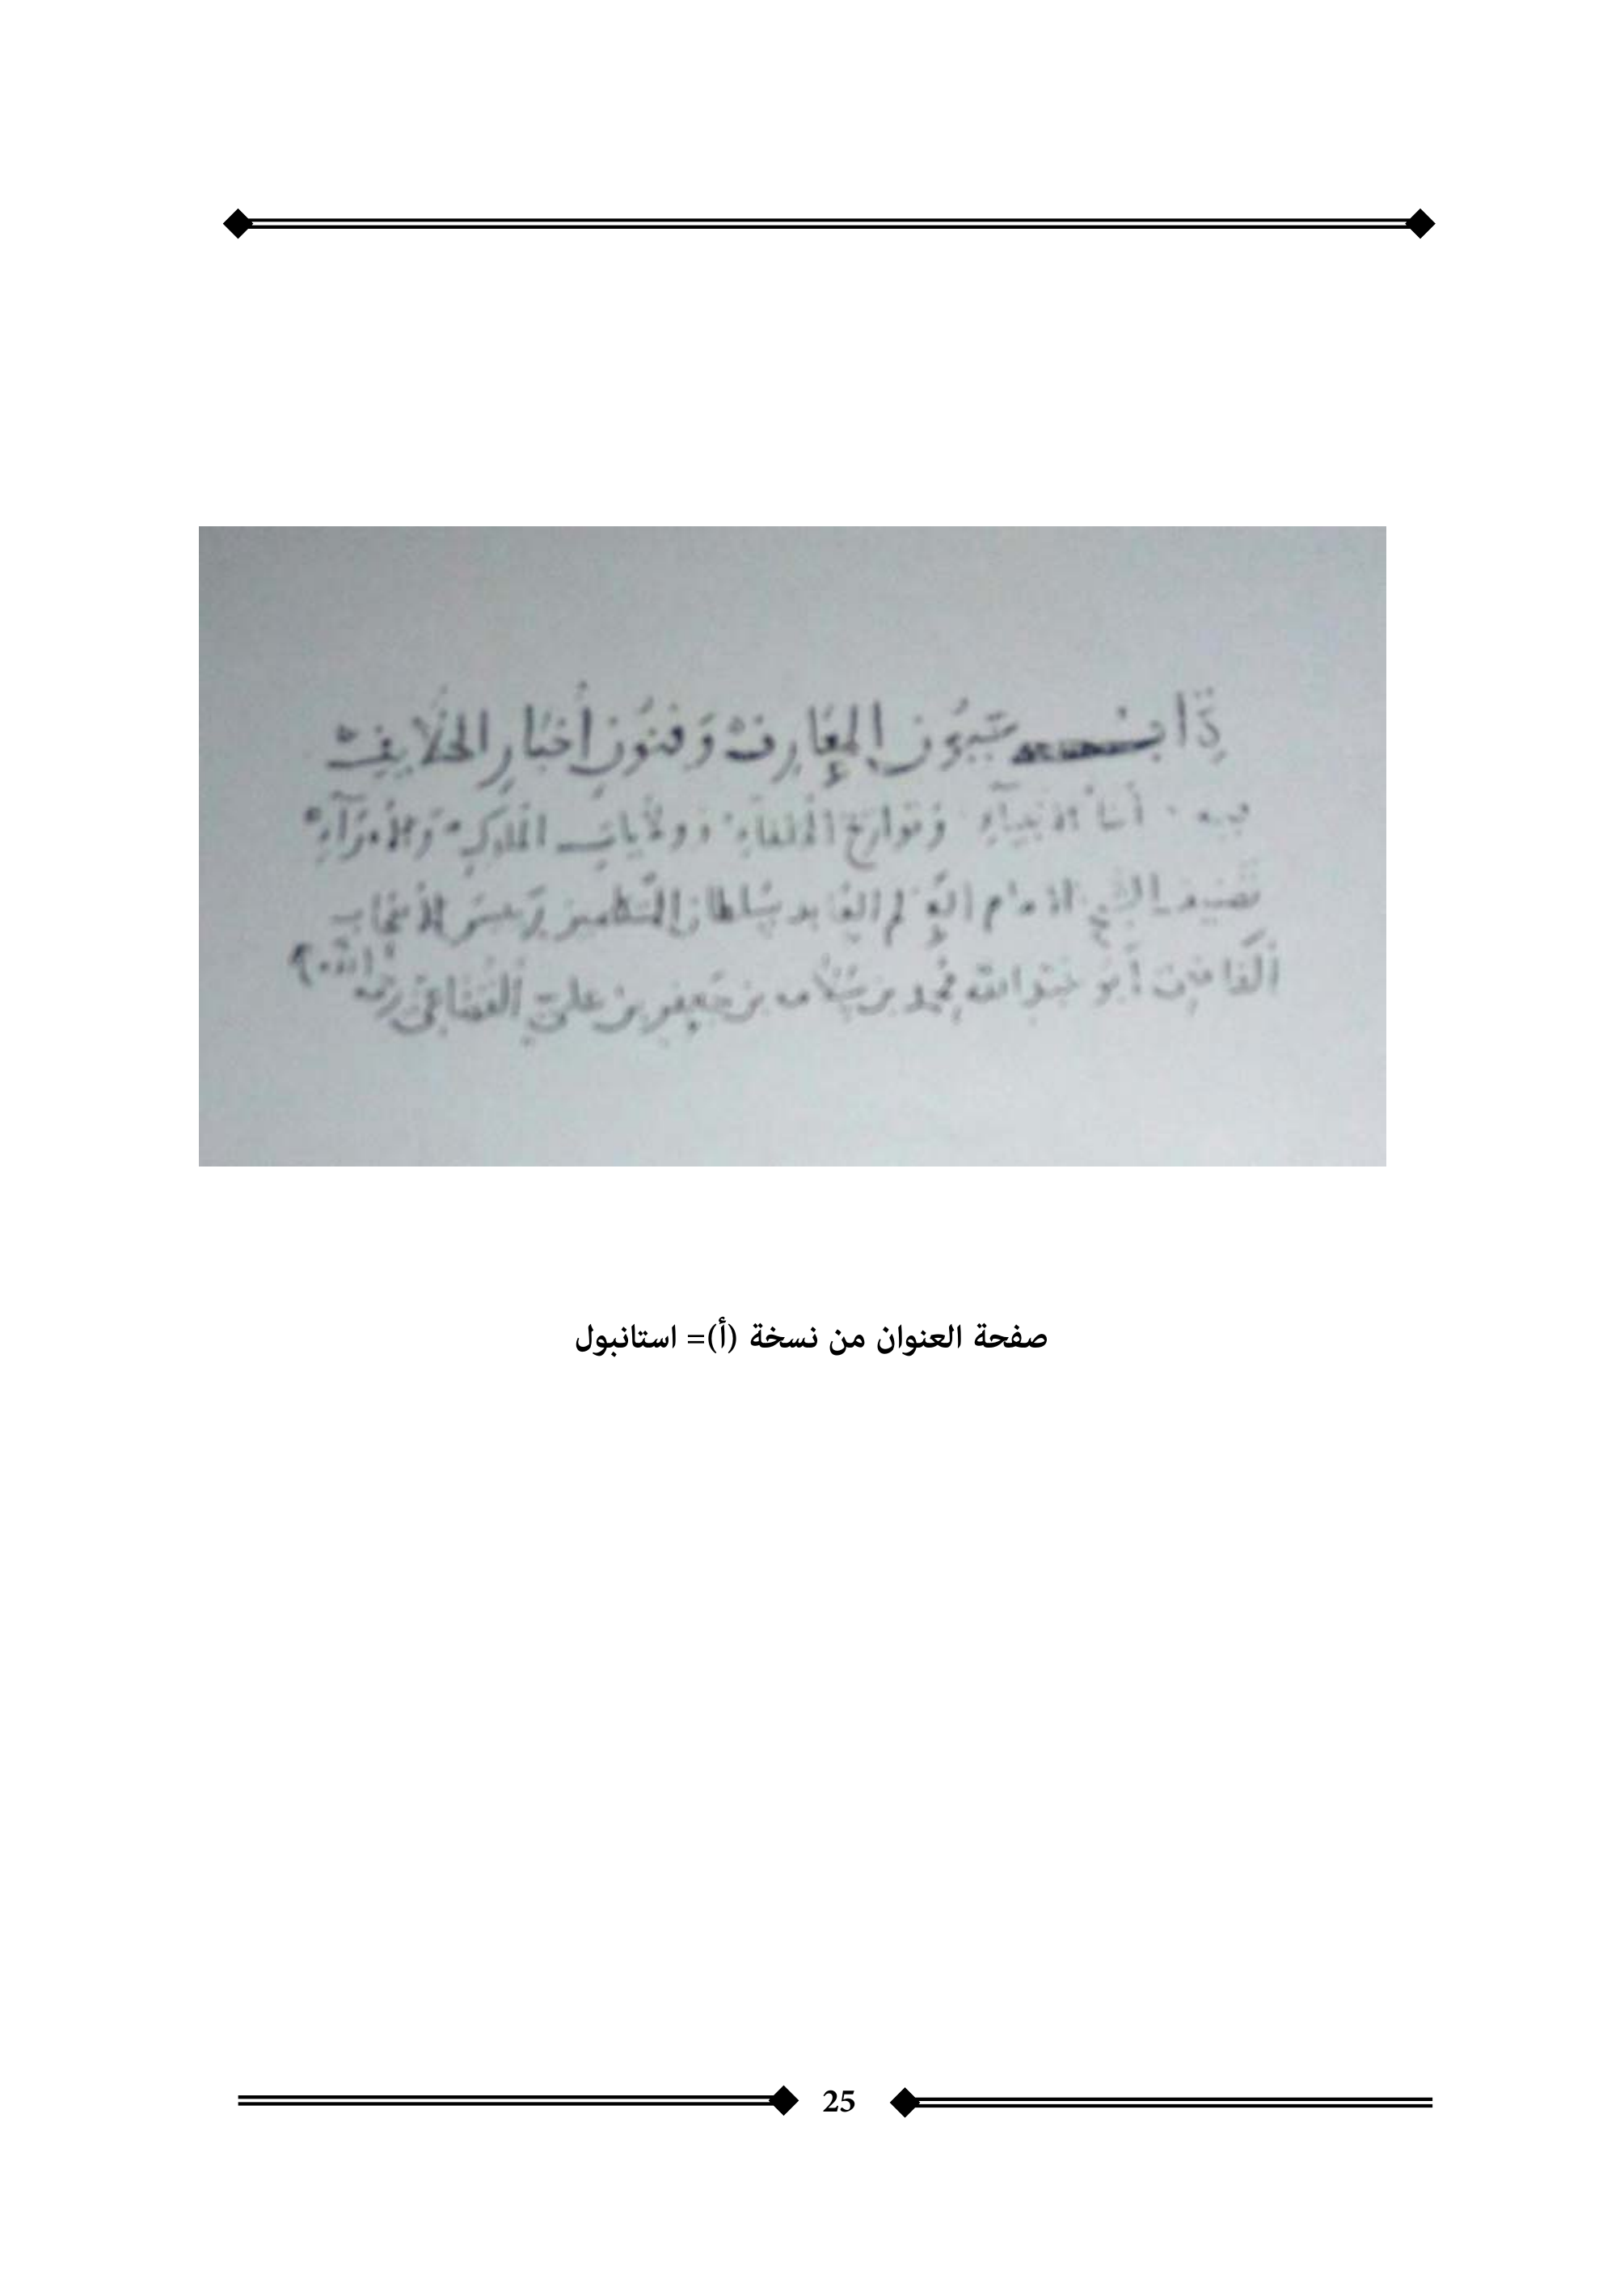 عُيُون المعَارِف وَفنُونِ أَخبَارِ الخَلَايِف
فيه أنبأ الانبيآءِ وَتوارِيخ الخلفآءِ وَولاَيات الملوك وَالأمَرآءِ
تَصنيف الشيخ الامام العَالم العَابد سُلطان المتكلمين رَئيس الأصحَاب
القاضى أبو عَبد الله مُحمد بن سَلاَمه بن جَعفر بن علىّ القضَاعىّ رحمه الله
صفحة العنوان من نسخة (أ)= استانبول
25